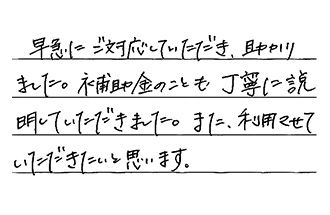 早急にご対応していただき、助かり
ました。補助金のことも丁寧に説
明していただきました。また、利用させて
いただきたいと思います。